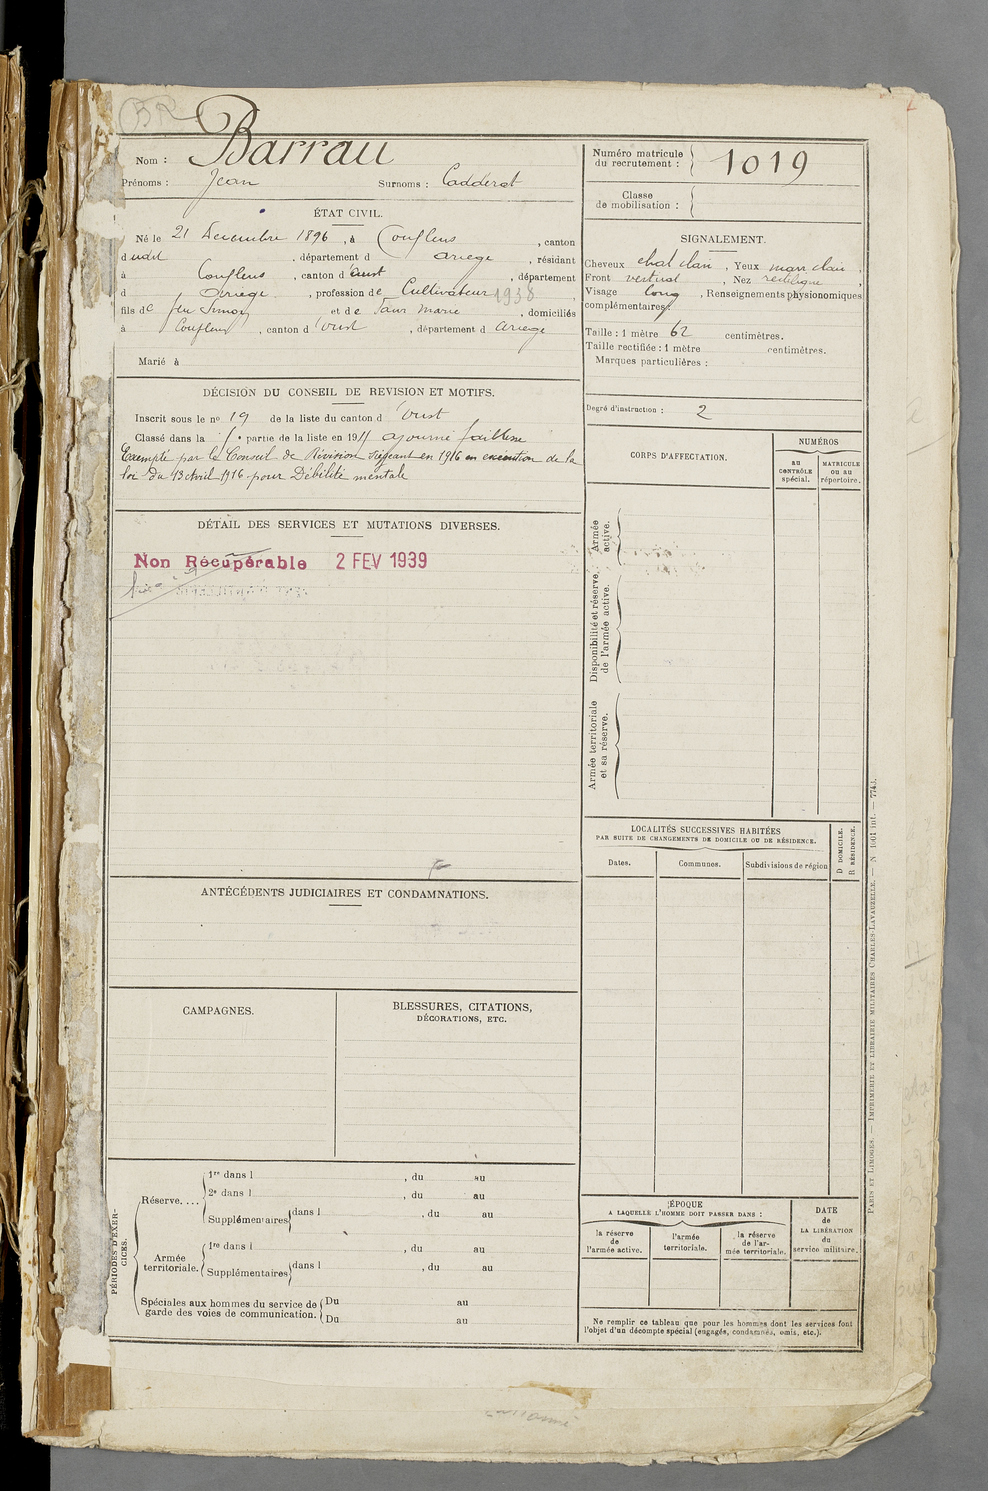 BR
Nom : Barrau
Prénoms : Jean Surnoms : Cadderot
ÉTAT CIVIL.
Né le 21 Décembre 1896, à Couflens, canton
dudit, département d Ariège, résidant
à Couflens, canton d'Oust, département
d Ariège, profession de Cultivateur 1938,
fils de feu Simon et de Faur Marie, domiciliés
à Couflens, canton d'Oust, département d Ariège
Marié à
DÉCISION DU CONSEIL DE REVISION ET MOTIFS.
Inscrit sous le nº 19 de la liste du canton d'Oust
Classé dans la partie de la liste en 191 ajourné faiblesse
Exempté par le Conseil de Révision siégeant en 1916 en exécution de la
loi du 13 Avril 1916 pour Débilité mentale
DÉTAIL DES SERVICES ET MUTATIONS DIVERSES.
Non Récupérable 2 FEV 1939
ANTÉCÉDENTS JUDICIAIRES ET CONDAMNATIONS.
CAMPAGNES.
BLESSURES, CITATIONS,
DÉCORATIONS, ETC.
PÉRIODES D'EXER-
CICES.
Réserve. ...
1re dans l , du au
2e dans l , du au
Supplémentaires dans l , du au
Armée
territoriale.
1re dans l , du au
Supplémentaires dans l , du au
Spéciales aux hommes du service de
garde des voies de communication.
Du au
Du au
Numéro matricule
du recrutement : 1019
Classe
de mobilisation :
SIGNALEMENT.
Cheveux chat clair, Yeux marr clair,
Front vertical, Nez rectiligne,
Visage long, Renseignements physionomiques
complémentaires :
Taille : 1 mètre 62 centimètres.
Taille rectifiée : 1 mètre centimètres.
Marques particulières :
Degré d'instruction : 2
CORPS D'AFFECTATION.
NUMÉROS
au
CONTRÔLE
spécial.
MATRICULE
ou au
répertoire.
Armée
active.
Disponibilité et réserve
de l'armée active.
Armée territoriale
et sa réserve.
LOCALITÉS SUCCESSIVES HABITÉES
PAR SUITE DE CHANGEMENTS DE DOMICILE OU DE RÉSIDENCE.
Dates.
Communes.
Subdivisions de région
D DOMICILE.
R RÉSIDENCE.
ÉPOQUE
A LAQUELLE L'HOMME DOIT PASSER DANS :
la réserve
de
l'armée active.
l'armée
territoriale.
la réserve
de l'ar-
mée territoriale.
DATE
de
LA LIBÉRATION
du
service militaire.
Ne remplir ce tableau que pour les hommes dont les services font
l'objet d'un décompte spécial (engagés, condamnés, omis, etc.).
PARIS ET LIMOGES. — IMPRIMERIE ET LIBRAIRIE MILITAIRES CHARLES-LAVAUZELLE. — N 1601 int. — 7743.